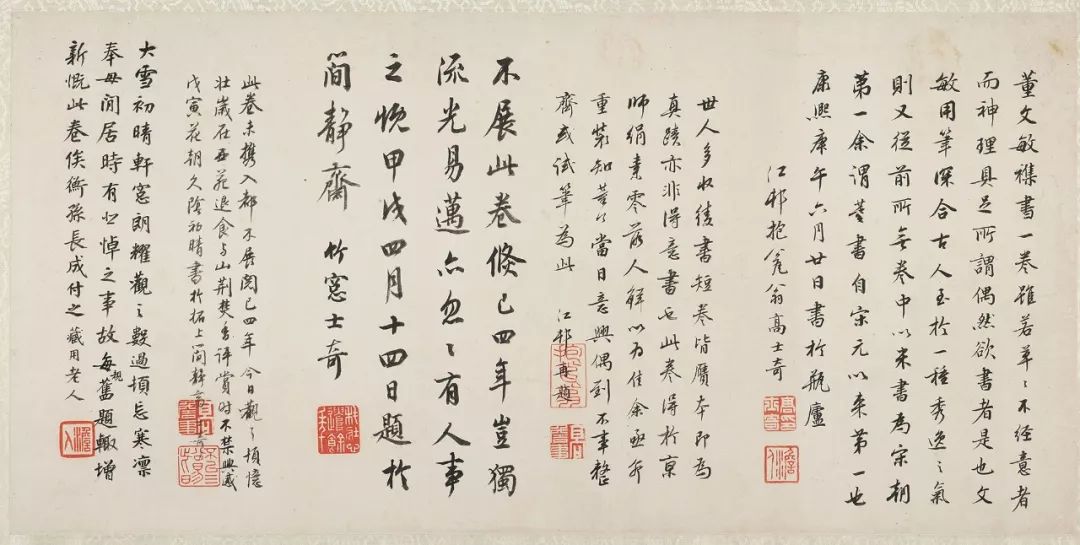 董文敏襍書一卷雖若草〻不經意者
而神理具足所謂偶然欲書者是也文
敏用筆深合古人至於一種秀逸之氣
則又從前所無卷中以米書為宋朝
第一余謂董書自宋元以來第一也
康熙庚午六月廿日書於瓶廬
江邨抱瓮翁高士奇
世人多收綾書短卷皆贋本即為
真蹟亦非得意書也此卷得於京
師絹素零落人鮮以為佳余亟
重裝知董公當日意興偶到不事整
齊或試筆為此 江邨再題
不展此卷倐已四年豈獨
流光易邁亦忽〻有人事
之慨甲戌四月十四日題於
簡靜齋 竹窓士奇
此卷未攜入都不展閱已四年今日觀之頃憶
壯嵗在西苑退食與山荊焚香評賞時不禁興感
戊寅花朝久陰初晴書於柘上簡靜齋 士奇
大雪初晴軒窓朗耀觀之數過頓忘寒凛
奉母閒居時有悲悼之事故每觀舊題輙增
新慨此卷俟衡孫長成付之 藏用老人